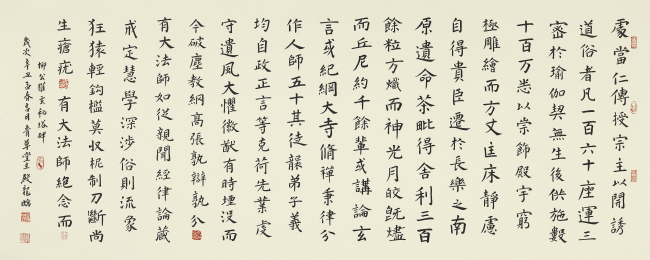 處當仁傳授宗主以開誘
道俗者凡一百六十座運三
密於瑜伽契無生後供施數
十百万悉以崇飾殿宇窮
極雕繪而方丈匡床靜慮
自得貴臣遷於長樂之南
原遺命茶毗得舍利三百
餘粒方熾而神光月皎既燼
而丘尼約千餘輩或講論玄
言或紀綱大寺脩禪秉律分
作人師五十其徒龍弟子義
均自政正言等克荷先業虔
守遺風大懼徽猷有時堙沒而
今破塵教網高張孰辯孰分
有大法師如從親聞經律論藏
戒定慧學深涉俗則流象
狂猿輕鈎檻莫收柅制刀斷尚
生瘡疣 有大法師絕念而
柳公權玄秘塔碑
歲次辛丑孟春吉月青草堂主殷龍